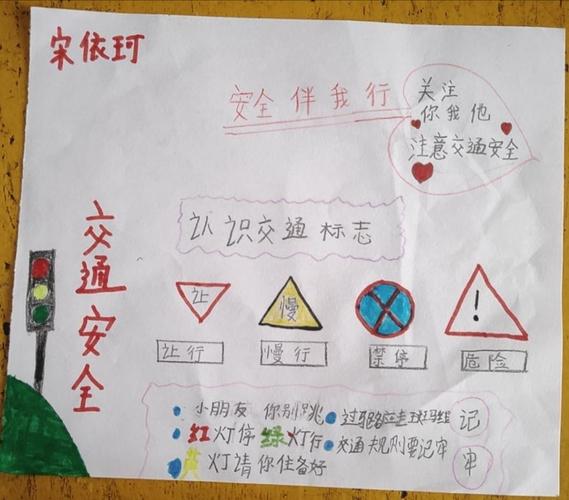 宋依珂
安全伴我行
关注
你我他
注意交通安全
交通安全
认识交通标志
让
慢
!
让行
慢行
禁停
危险
小朋友 你别跳
过马路应走斑马组
红灯停 绿灯行
交通规则要记牢
黄灯请你住备好
记
牢